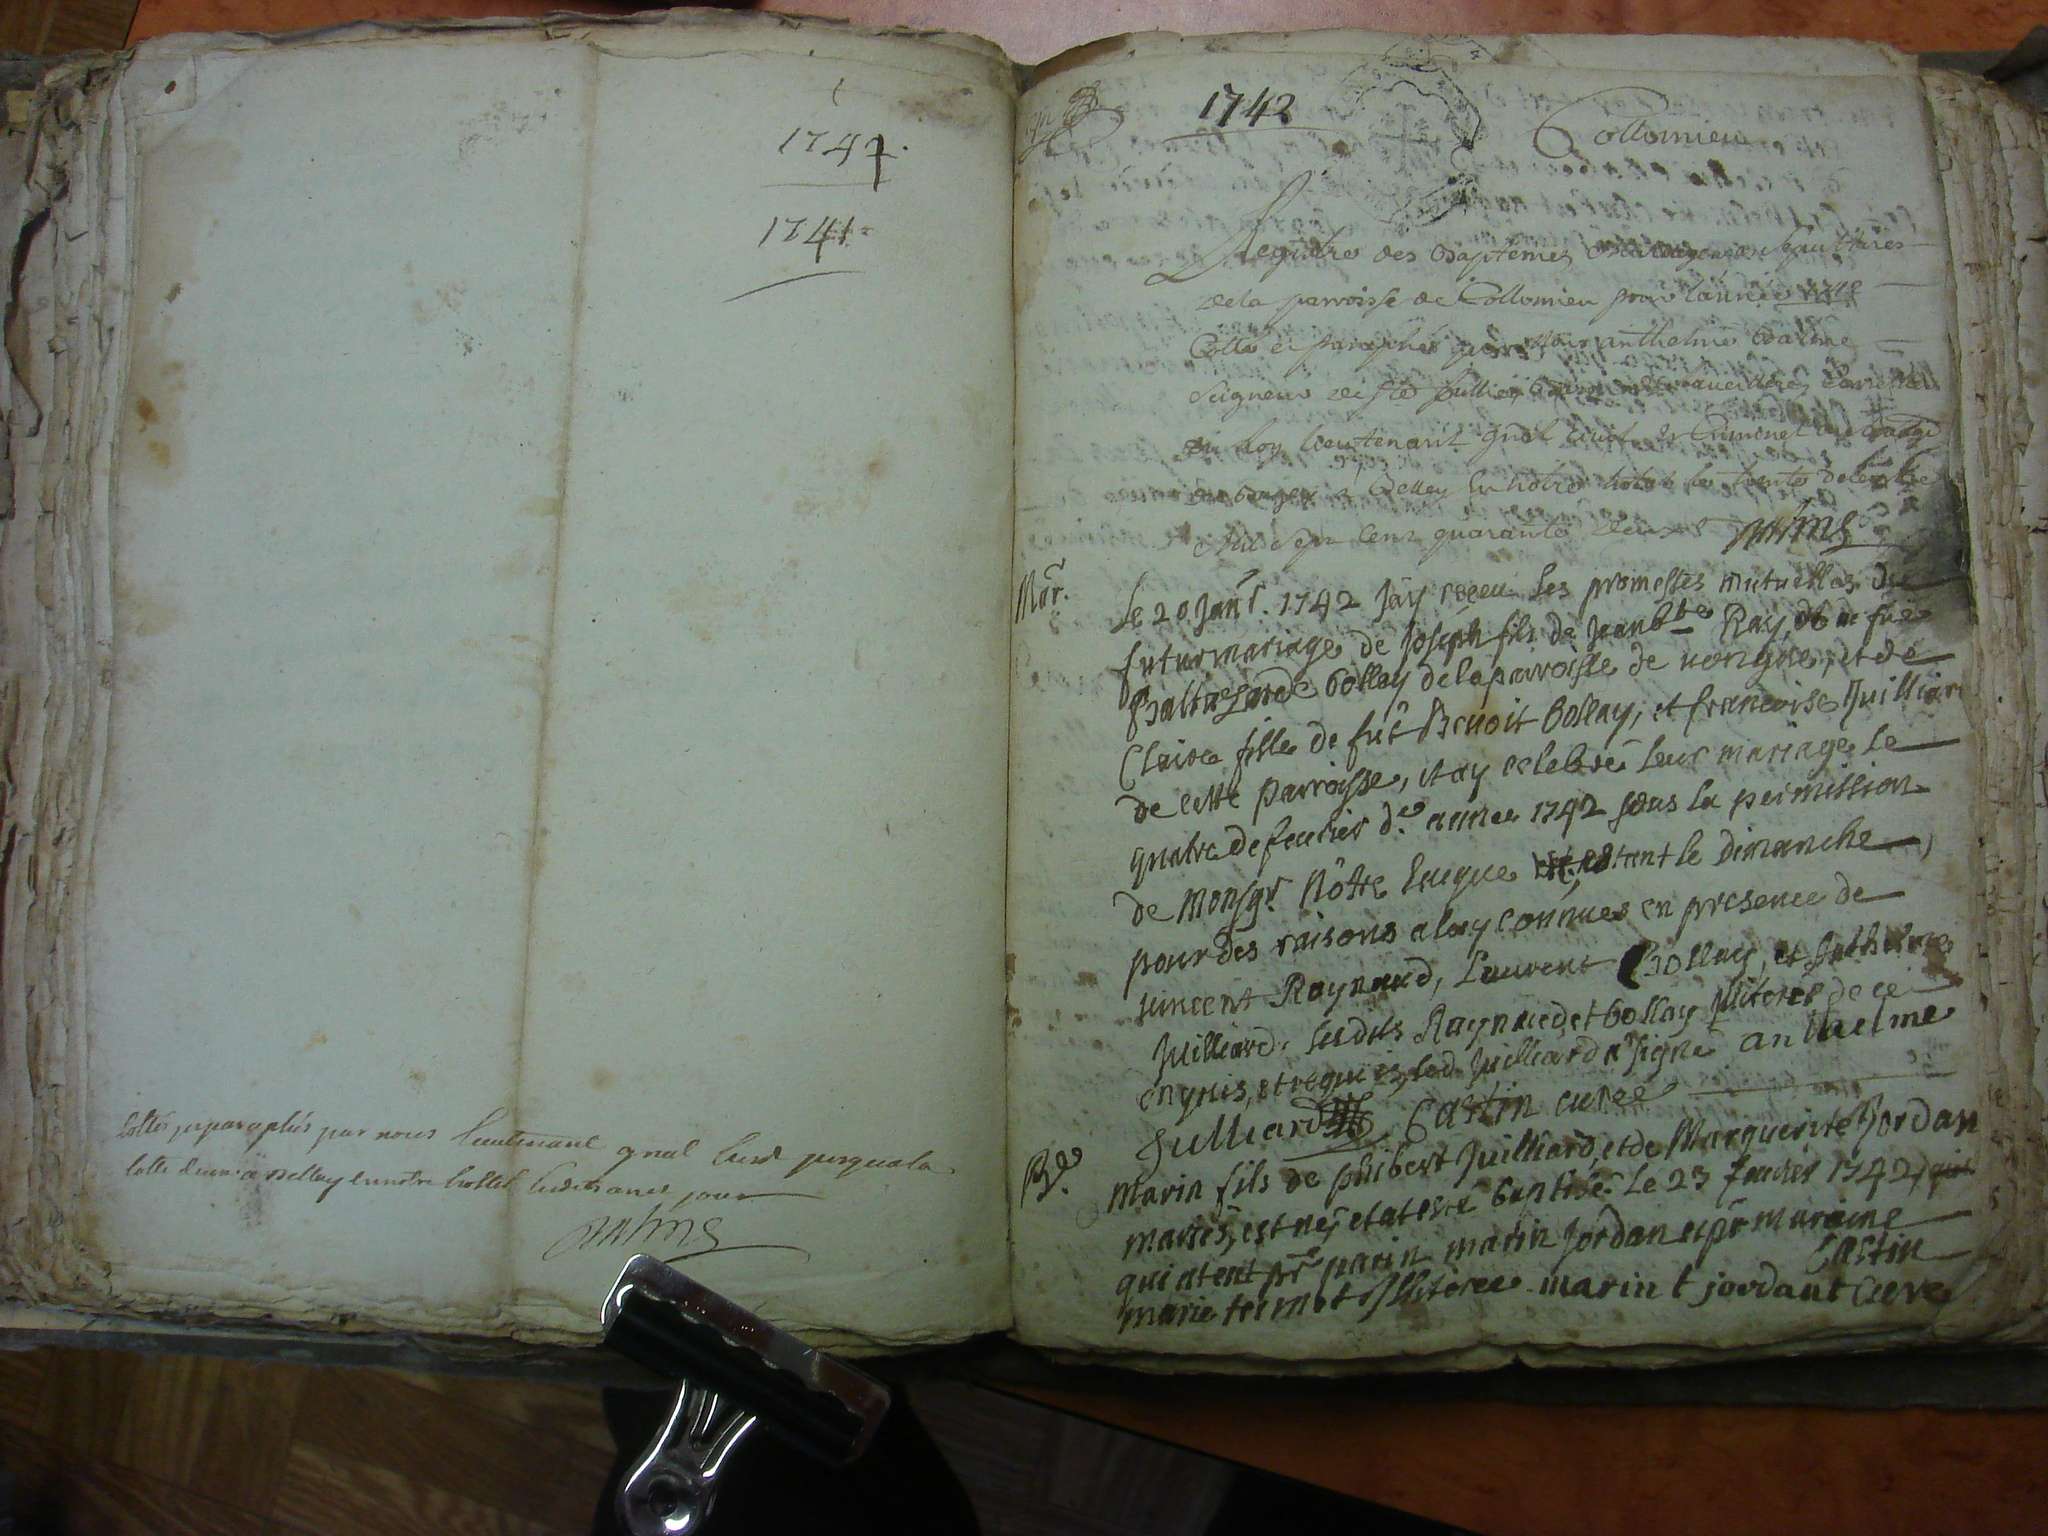 1747.
1741.
Cottés et paraphés par nous lieutenant gnal Civil jusqu'a la
Cotte à Belley en notre hostel lesd. an et jour
Balme
1742
Collomieu
Registre des Baptemes Mariages et Sepultures
de la parroisse de Collomieu pour l'année 1742
Cotté et paraphé par Nous anthelme Balme
Seigneur de Ste Jullie Conseiller
du Roy lieutenant gnal Civil et Criminel au Bailliage
de bugey à Belley en notre hotel le trente
Mil sept cent quarante Balme
Mar.
Le 20 Janr. 1742 Jay receu les promesses mutuelles de
futur mariage de Joseph fils de Jeanbte Ray, et de fue
Baltazarde bollay de la parroisse de vongne, et de
Claire fille de fut Benoit bollay, et francoise Juilliard
de cette parroisse, et ay celebré leur mariage le
quatre de feuvrier de. année 1742 sous la permission
de Monsgr. Nôtre Evêque estant le dimanche,
pour des raisons a luy connues en presence de
vincent Raynaud, Laurent Bollay, et Anthelme
Juilliard. lesdits Raynaud, et bollay Illiteres de ce
enquis, et requis, led. Juilliard a signé anthelme
Julliard Castin curé
Be.
Marin fils de philibert Juilliard, et de Marguerite Jordan
mariés, est né, et at esté baptisé le 23 feuvrier 1742,
qui at eut pr parin marin Jordan et pr maraine
Castin
marie termet Illiteree marin t jordant Curé